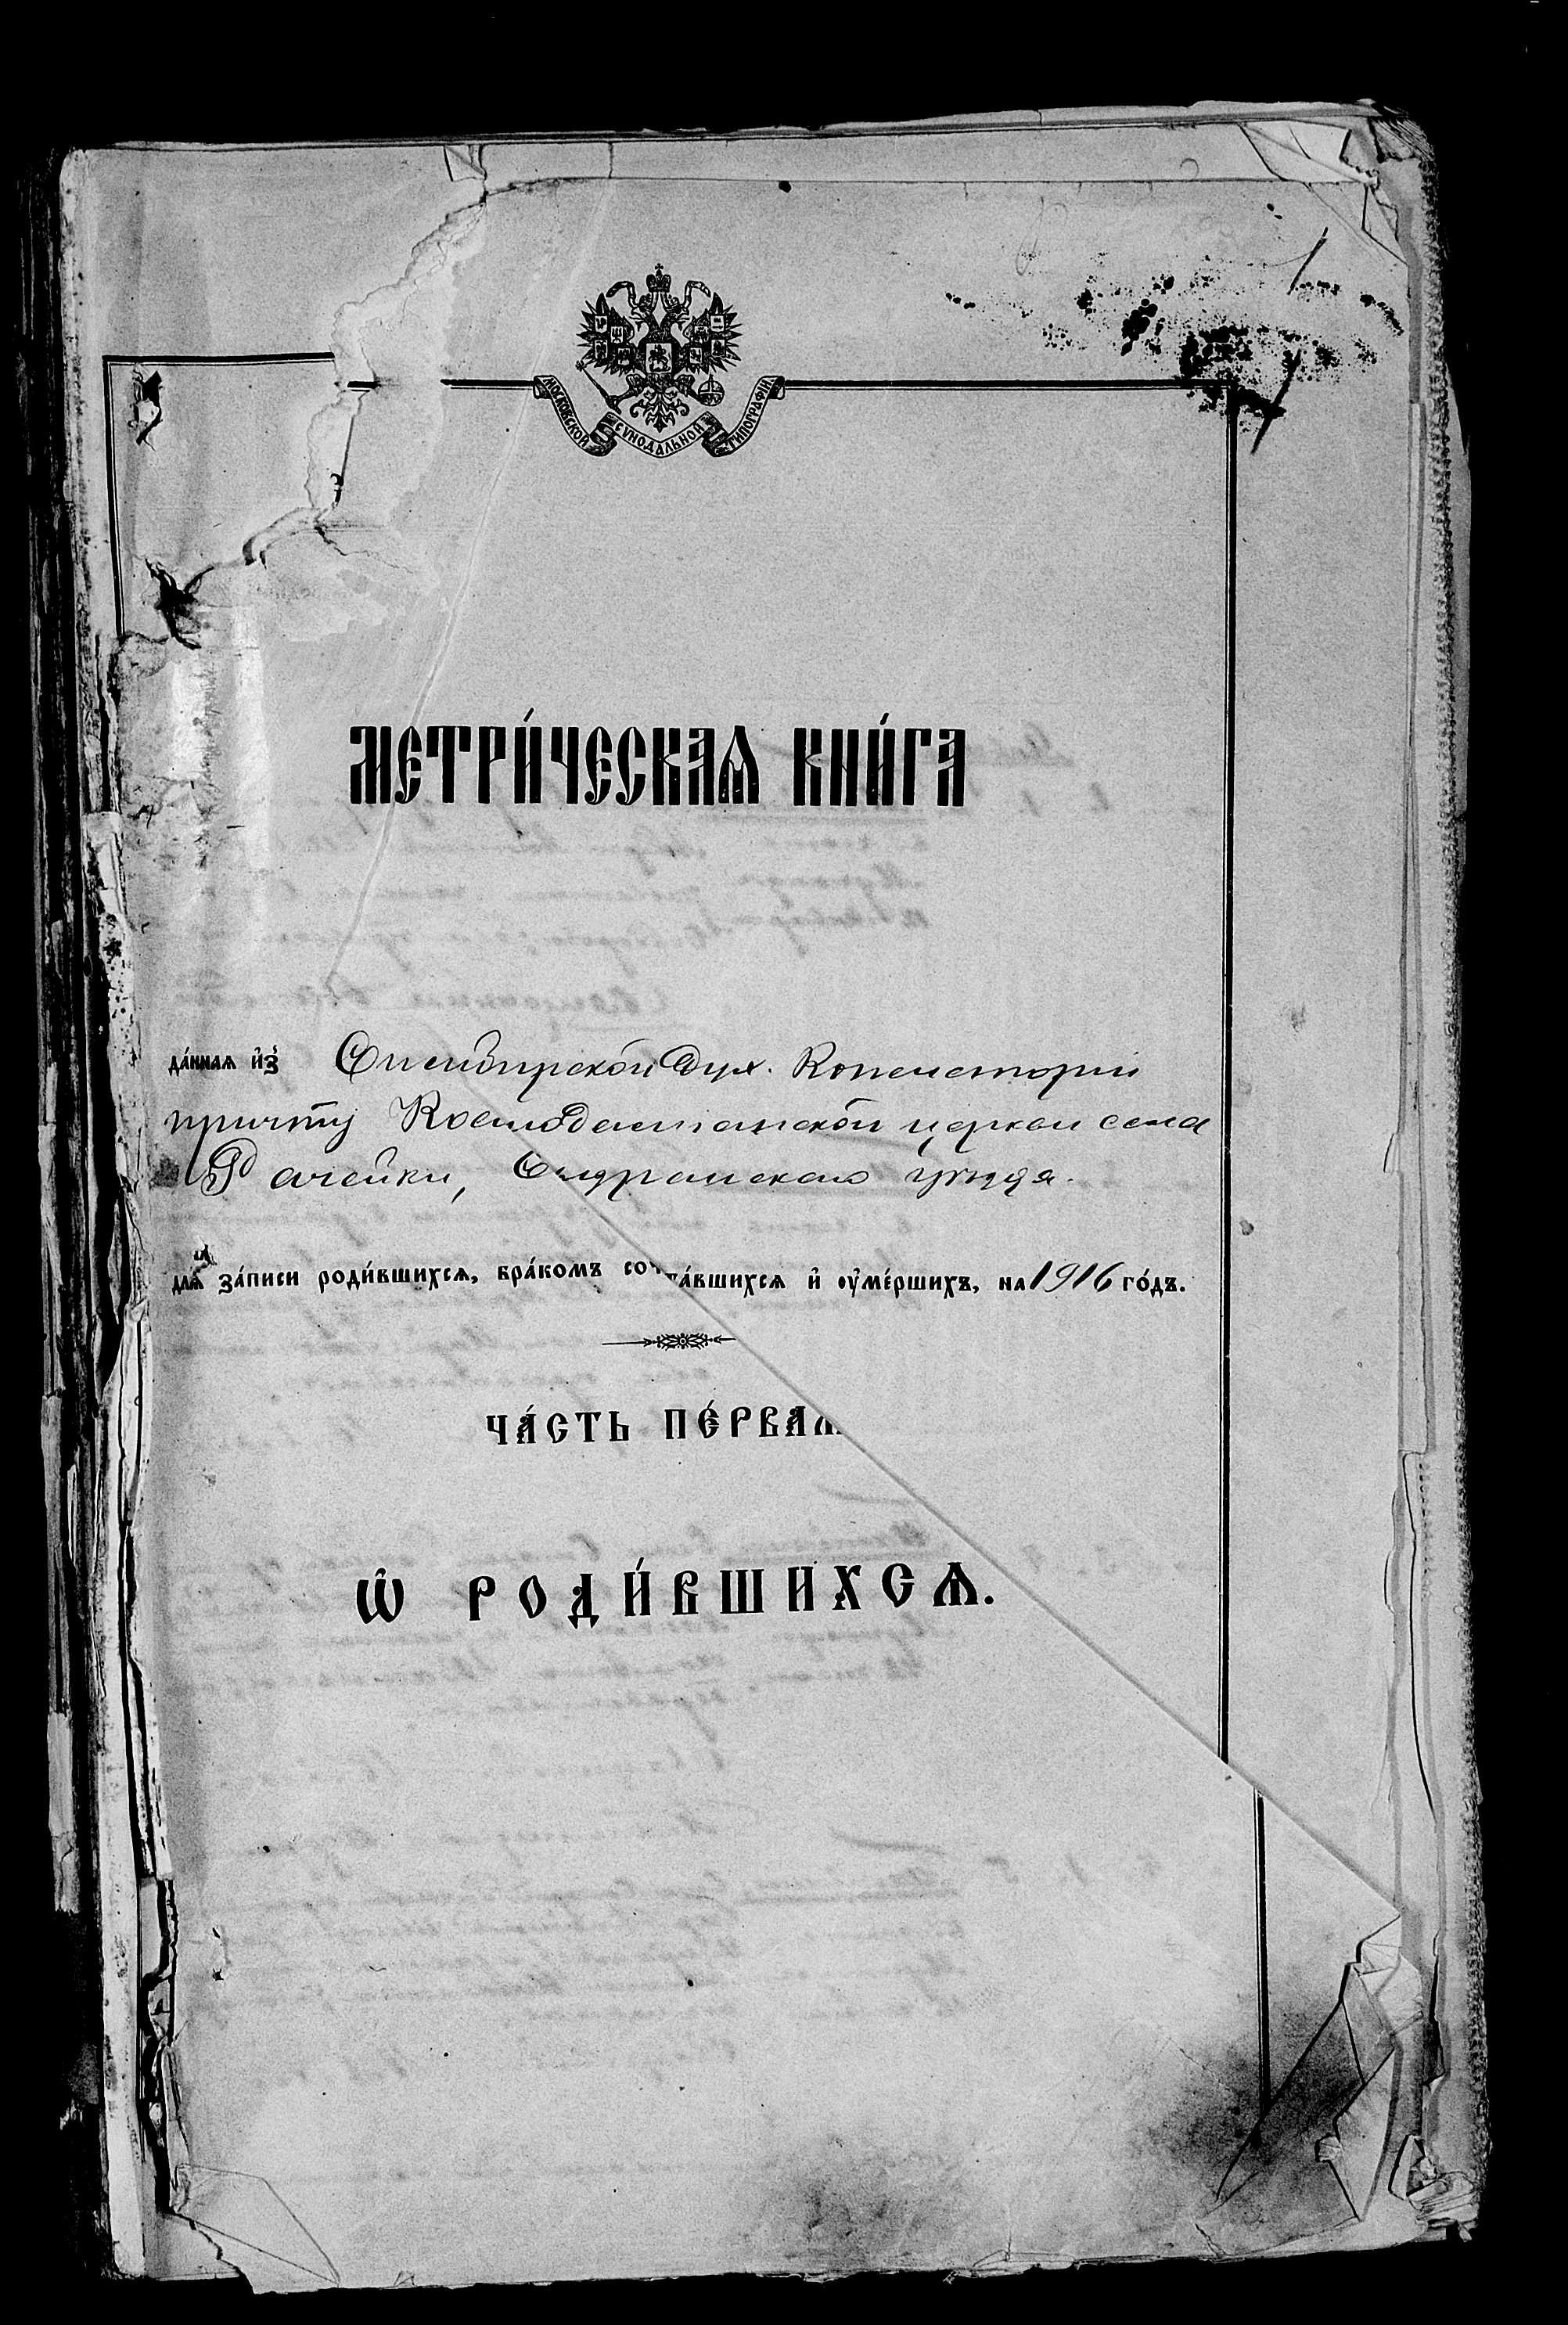 МОСКОВСКОЙ СѴНОДАЛЬНОЙ ТИПОГРАФІИ
МЕТРИ́ЧЕСКАѦ КНИ́ГА
да́ннаѧ и҆з̾ Симбирской Дух. Консисторіи
причту Космодаміанской церкви села
Рачейки, Сызранскаго уѣзда.
длѧ за́писи роди́вшихсѧ, бра́комъ соч та́вшихсѧ и҆ ᲂу҆ме́ршихъ, на 1916 го́дъ.
ЧА́СТЬ ПЕ́РВАѦ
Ѽ РОДИ́ВШИХСѦ.